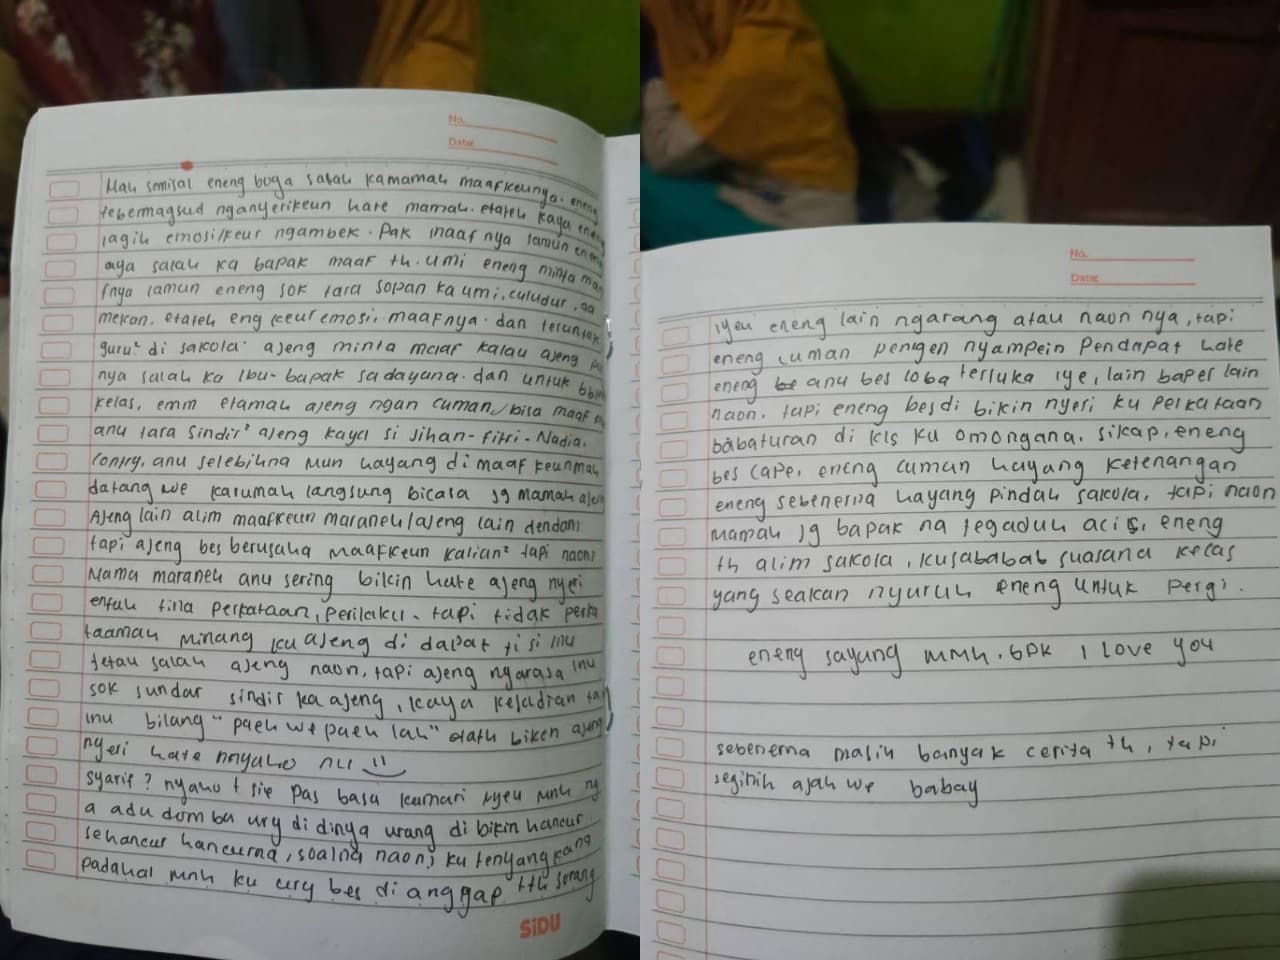 No.
Date
Mah semisal eneng boga salah kamamah maafkeunya. eneng
tebermagsud nganyerikeun hate mamah. etateh kaya eneng
lagih emosi/keur ngambek. Pak maaf nya lamun eneng
aya salah ka bapak maaf th. umi eneng minta maa
fnya lamun eneng sok tara sopan ka umi, culudur, ga
mekan. etateh eng keur emosi. maafnya. dan teruntuk
guru² di sakola ajeng minta maaf kalau ajeng pu
nya salah ka Ibu-bapak sadayana. dan untuk
kelas, emm etamah ajeng ngan cuman bisa maaf
anu tara sindir² ajeng kaya si Jihan-Fitri-Nadia.
anu selebihna mun hayang di maaf keunmah
datang we karumah langsung bicara jg mamah ajeng
Ajeng lain alim maafkeun maraneh/ajeng lain dendam
tapi ajeng bes berusaha maafkeun kalian² tapi naon
Nama maraneh anu sering bikin hate ajeng nyeri
entah tina perkataan, perilaku. tapi tidak perka
taamah minang ku ajeng di dapat ti si inu
tetau salah ajeng naon, tapi ajeng ngarasa inu
sok sundar sindir ka ajeng, kaya kejadian
inu bilang "paeh we paeh lah" etath biken ajeng
nyeri hate
syarif? nyaho t sie pas basa kamari nyeu mnh ng
a adu domba ury di dinya urang di bikin hancur
sehancur hancurna, soalna naon, ku tenyangkang
padahal mnh ku ury bes di anggap tth sorang
SiDU
No.
Date
iyeu eneng lain ngarang atau naon nya, tapi
eneng cuman pengen nyampein pendapat hate
eneng anu bes loba terluka iye, lain baper lain
naon. tapi eneng besdi bikin nyeri ku perkataan
babaturan di kls ku omongana. sikap, eneng
bes cape, eneng cuman hayang ketenangan
eneng sebenerna hayang pindah sakola. tapi naon
mamah jg bapak na tegaduh acis, eneng
th alim sakola, kusababab suasana kelas
yang seakan nyuruh eneng untuk pergi.
eneng sayung mmh. bpk I love you
sebenerna masih banyak cerita th, tapi
seginih ajah we babay